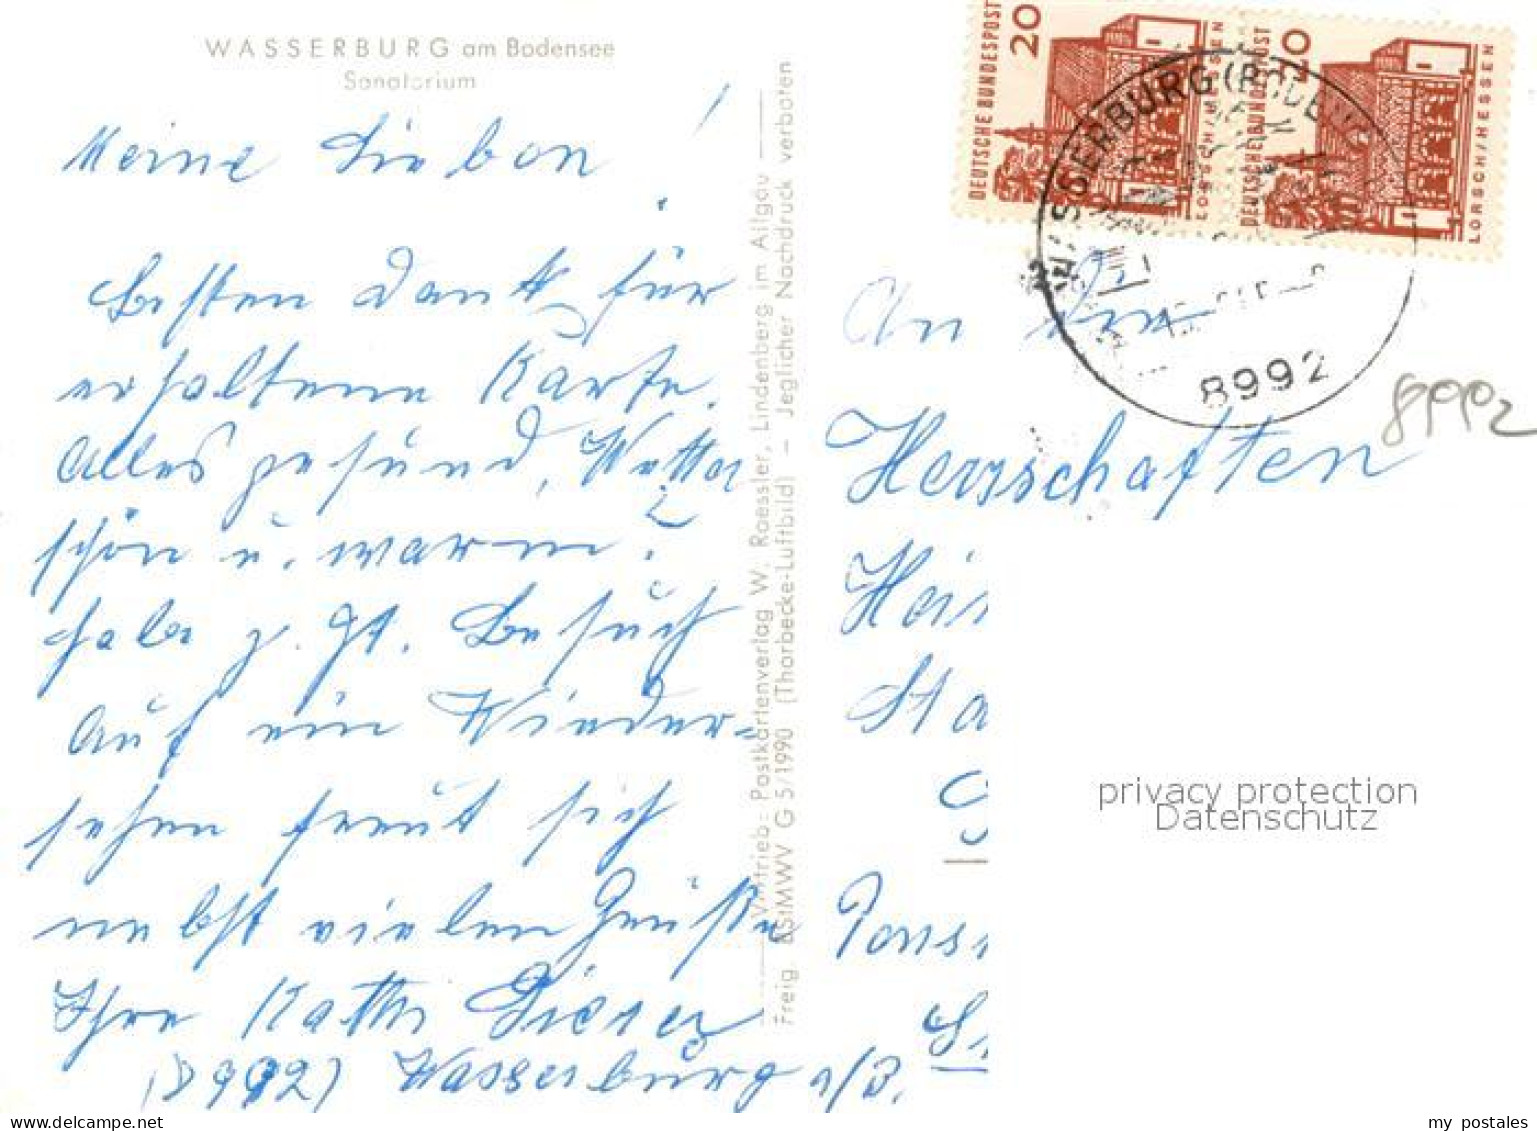 WASSERBURG am Bodensee
Sanatorium
Meine Lieben !
Besten Dank für
erhaltene Karte.
Alles gesund, Wetter
schön u. warm.
habe z. Zt. Besuch
Auf ein Wieder-
sehen freut sich
nebst vielen Grüße
Ihre Käthi
(8992) Wasserburg a/B.
Vertrieb: Postkartenverlag W. Roessler, Lindenberg im Allgäu
Freig. BStMWV G 5/1990 (Thorbecke-Luftbild) – Jeglicher Nachdruck verboten
DEUTSCHE BUNDESPOST
20
LORSCH/HESSEN
DEUTSCHE BUNDESPOST
20
LORSCH/HESSEN
WASSERBURG (BODENSEE)
8992
8992
An die
Herrschaften
Hein
Sta
Pens
privacy protection
Datenschutz
www.delcampe.net
my_postales